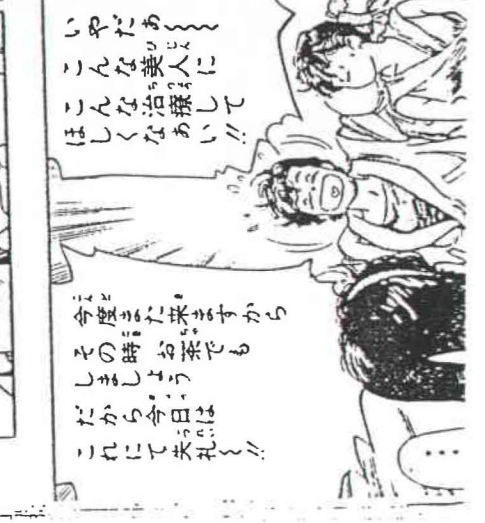 いやだぁ〜〜〜
こんな美人に
こんな治療して
ほしくなぁい!!
今度また来ますから
その時 お茶でも
しましょう
だから今日は
これにて失礼〜!!